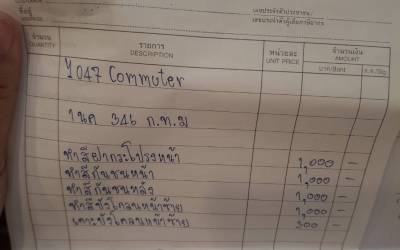 ชื่อผู้
เลขประจำตัวประชาชน
เลขประจำตัวผู้เสียภาษีอากร
จำนวน
QUANTITY
รายการ
DESCRIPTION
หน่วยละ
UNIT PRICE
จำนวนเงิน
AMOUNT
บาท/Baht
ส.ต./Stg.
Commuter
1นค 346 ก.ท.ม
ทำสีฝากระโปรงหน้า 1,000 -
ทำสีกันชนหน้า 1,000 -
ทำสีกันชนหลัง 1,000 -
ทำสีบังโคลนหน้าซ้าย 1,000 -
เคาะบังโคลนหน้าซ้าย 300 -